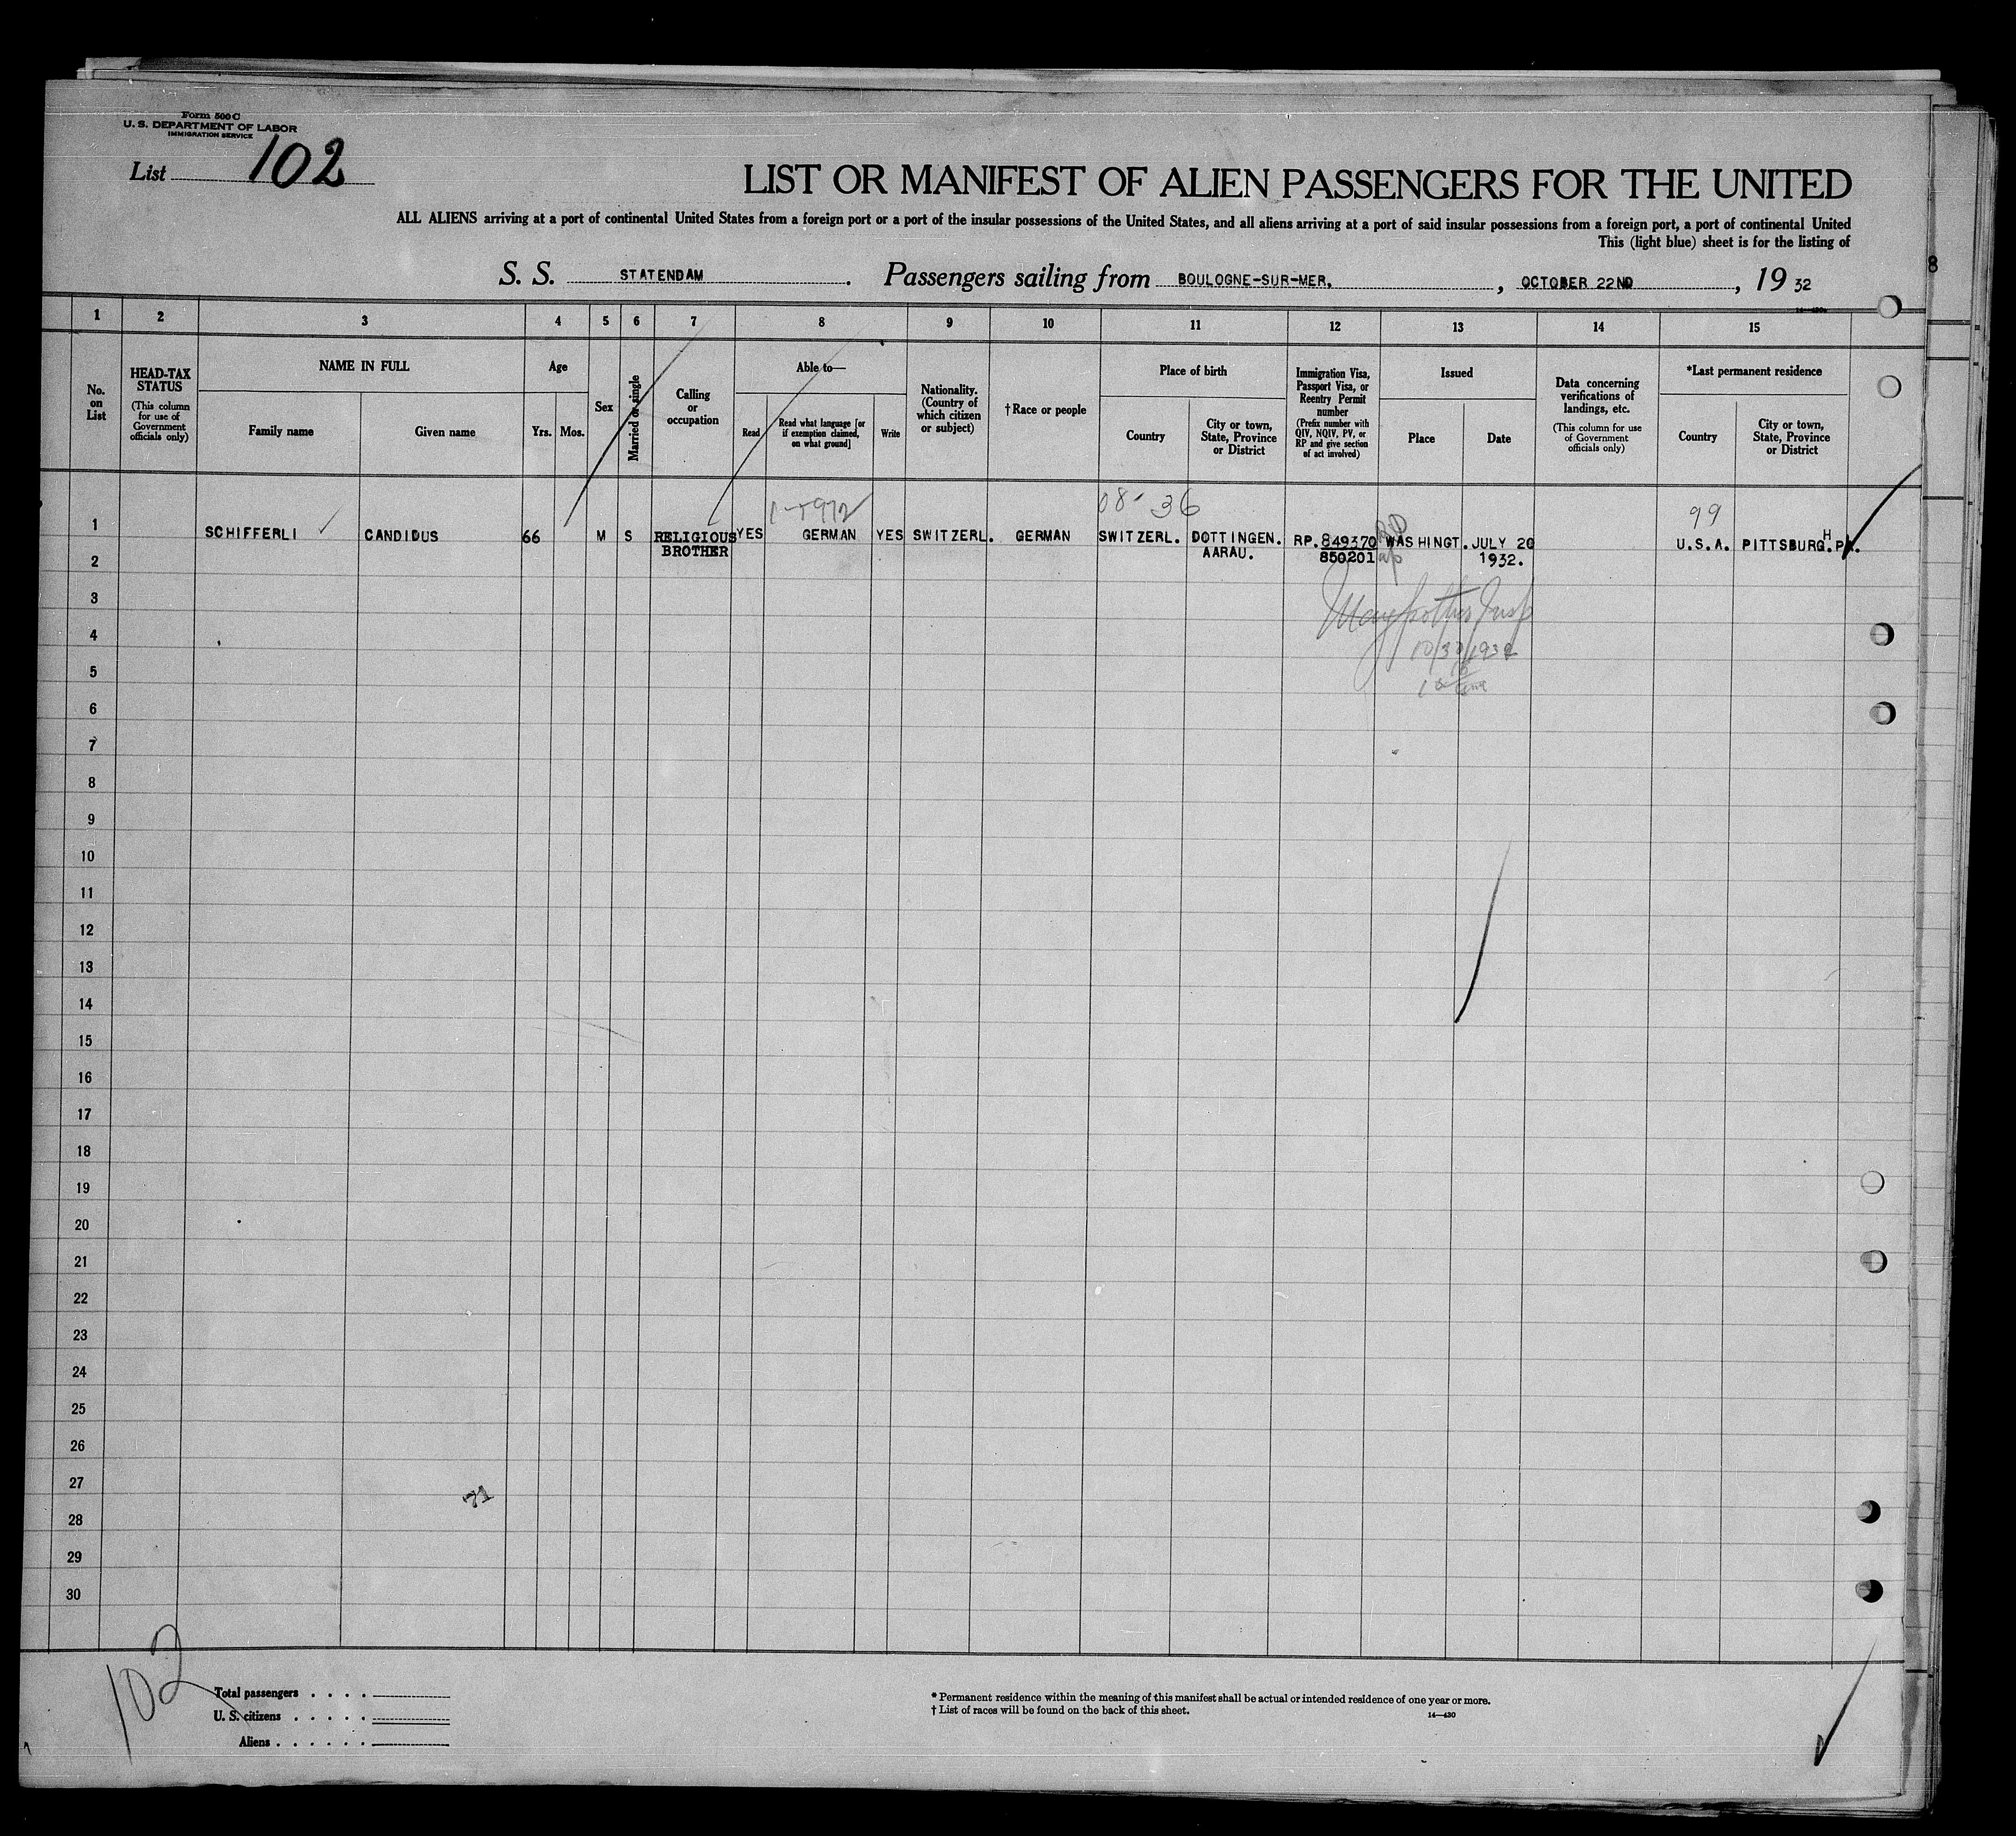 Form 500 C
U. S. DEPARTMENT OF LABOR
IMMIGRATION SERVICE
List 102
LIST OR MANIFEST OF ALIEN PASSENGERS FOR THE UNITED
ALL ALIENS arriving at a port of continental United States from a foreign port or a port of the insular possessions of the United States, and all aliens arriving at a port of said insular possessions from a foreign port, a port of continental United
This (light blue) sheet is for the listing of
8
S. S. STATENDAM. Passengers sailing from BOULOGNE-SUR-MER, , OCTOBER 22ND , 19 32
1 2 3 4 5 6 7 8 9 10 11 12 13 14 15
No. on List
HEAD-TAX STATUS
(This column for use of Government officials only)
NAME IN FULL
Family name
Given name
Age
Yrs. Mos.
Sex
Married or single
Calling or occupation
Able to—
Read
Read what language [or if exemption claimed, on what ground]
Write
Nationality. (Country of which citizen or subject)
†Race or people
Place of birth
Country
City or town, State, Province or District
Immigration Visa, Passport Visa, or Reentry Permit number
(Prefix number with QIV, NQIV, PV, or RP and give section of act involved)
Issued
Place
Date
Data concerning verifications of landings, etc.
(This column for use of Government officials only)
*Last permanent residence
Country
City or town, State, Province or District
08- 36
99
1 SCHIFFERLI CANDIDUS 66 M S RELIGIOUS YES GERMAN YES SWITZERL. GERMAN SWITZERL. DOTTINGEN. RP. 849370 WASHINGT. JULY 20 U.S.A. PITTSBURGH. PA.
BROTHER AARAU. 850201 1932.
2
3
10/30/1932
4
5
6
7
8
9
10
11
12
13
14
15
16
17
18
19
20
21
22
23
24
25
26
27
71
28
29
30
102
Total passengers . . . .
U. S. citizens . . . . .
Aliens . . . . . .
* Permanent residence within the meaning of this manifest shall be actual or intended residence of one year or more.
† List of races will be found on the back of this sheet.
14—430